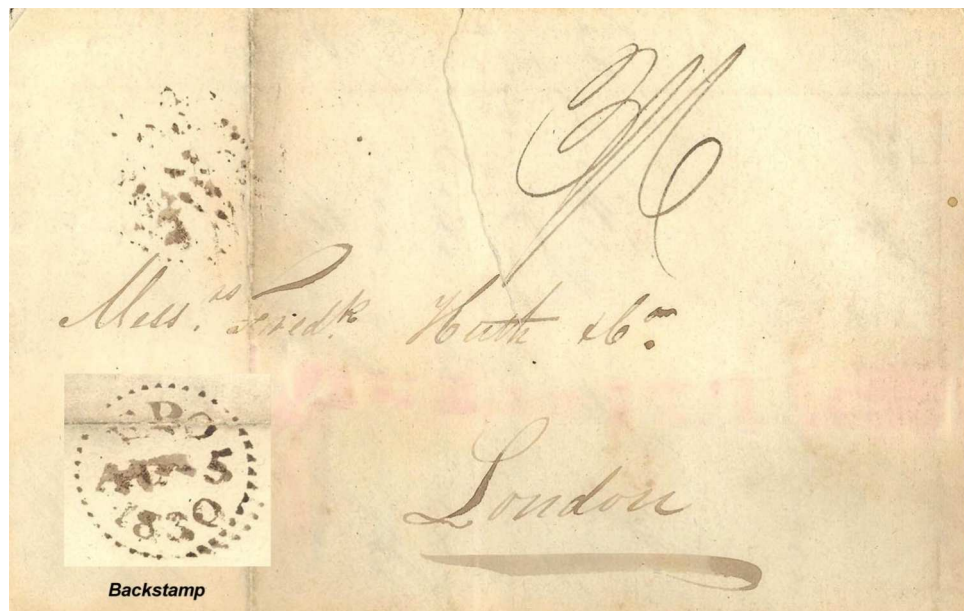 Mess.rs Fredk. Huth & Co.
London
5
1830
Backstamp